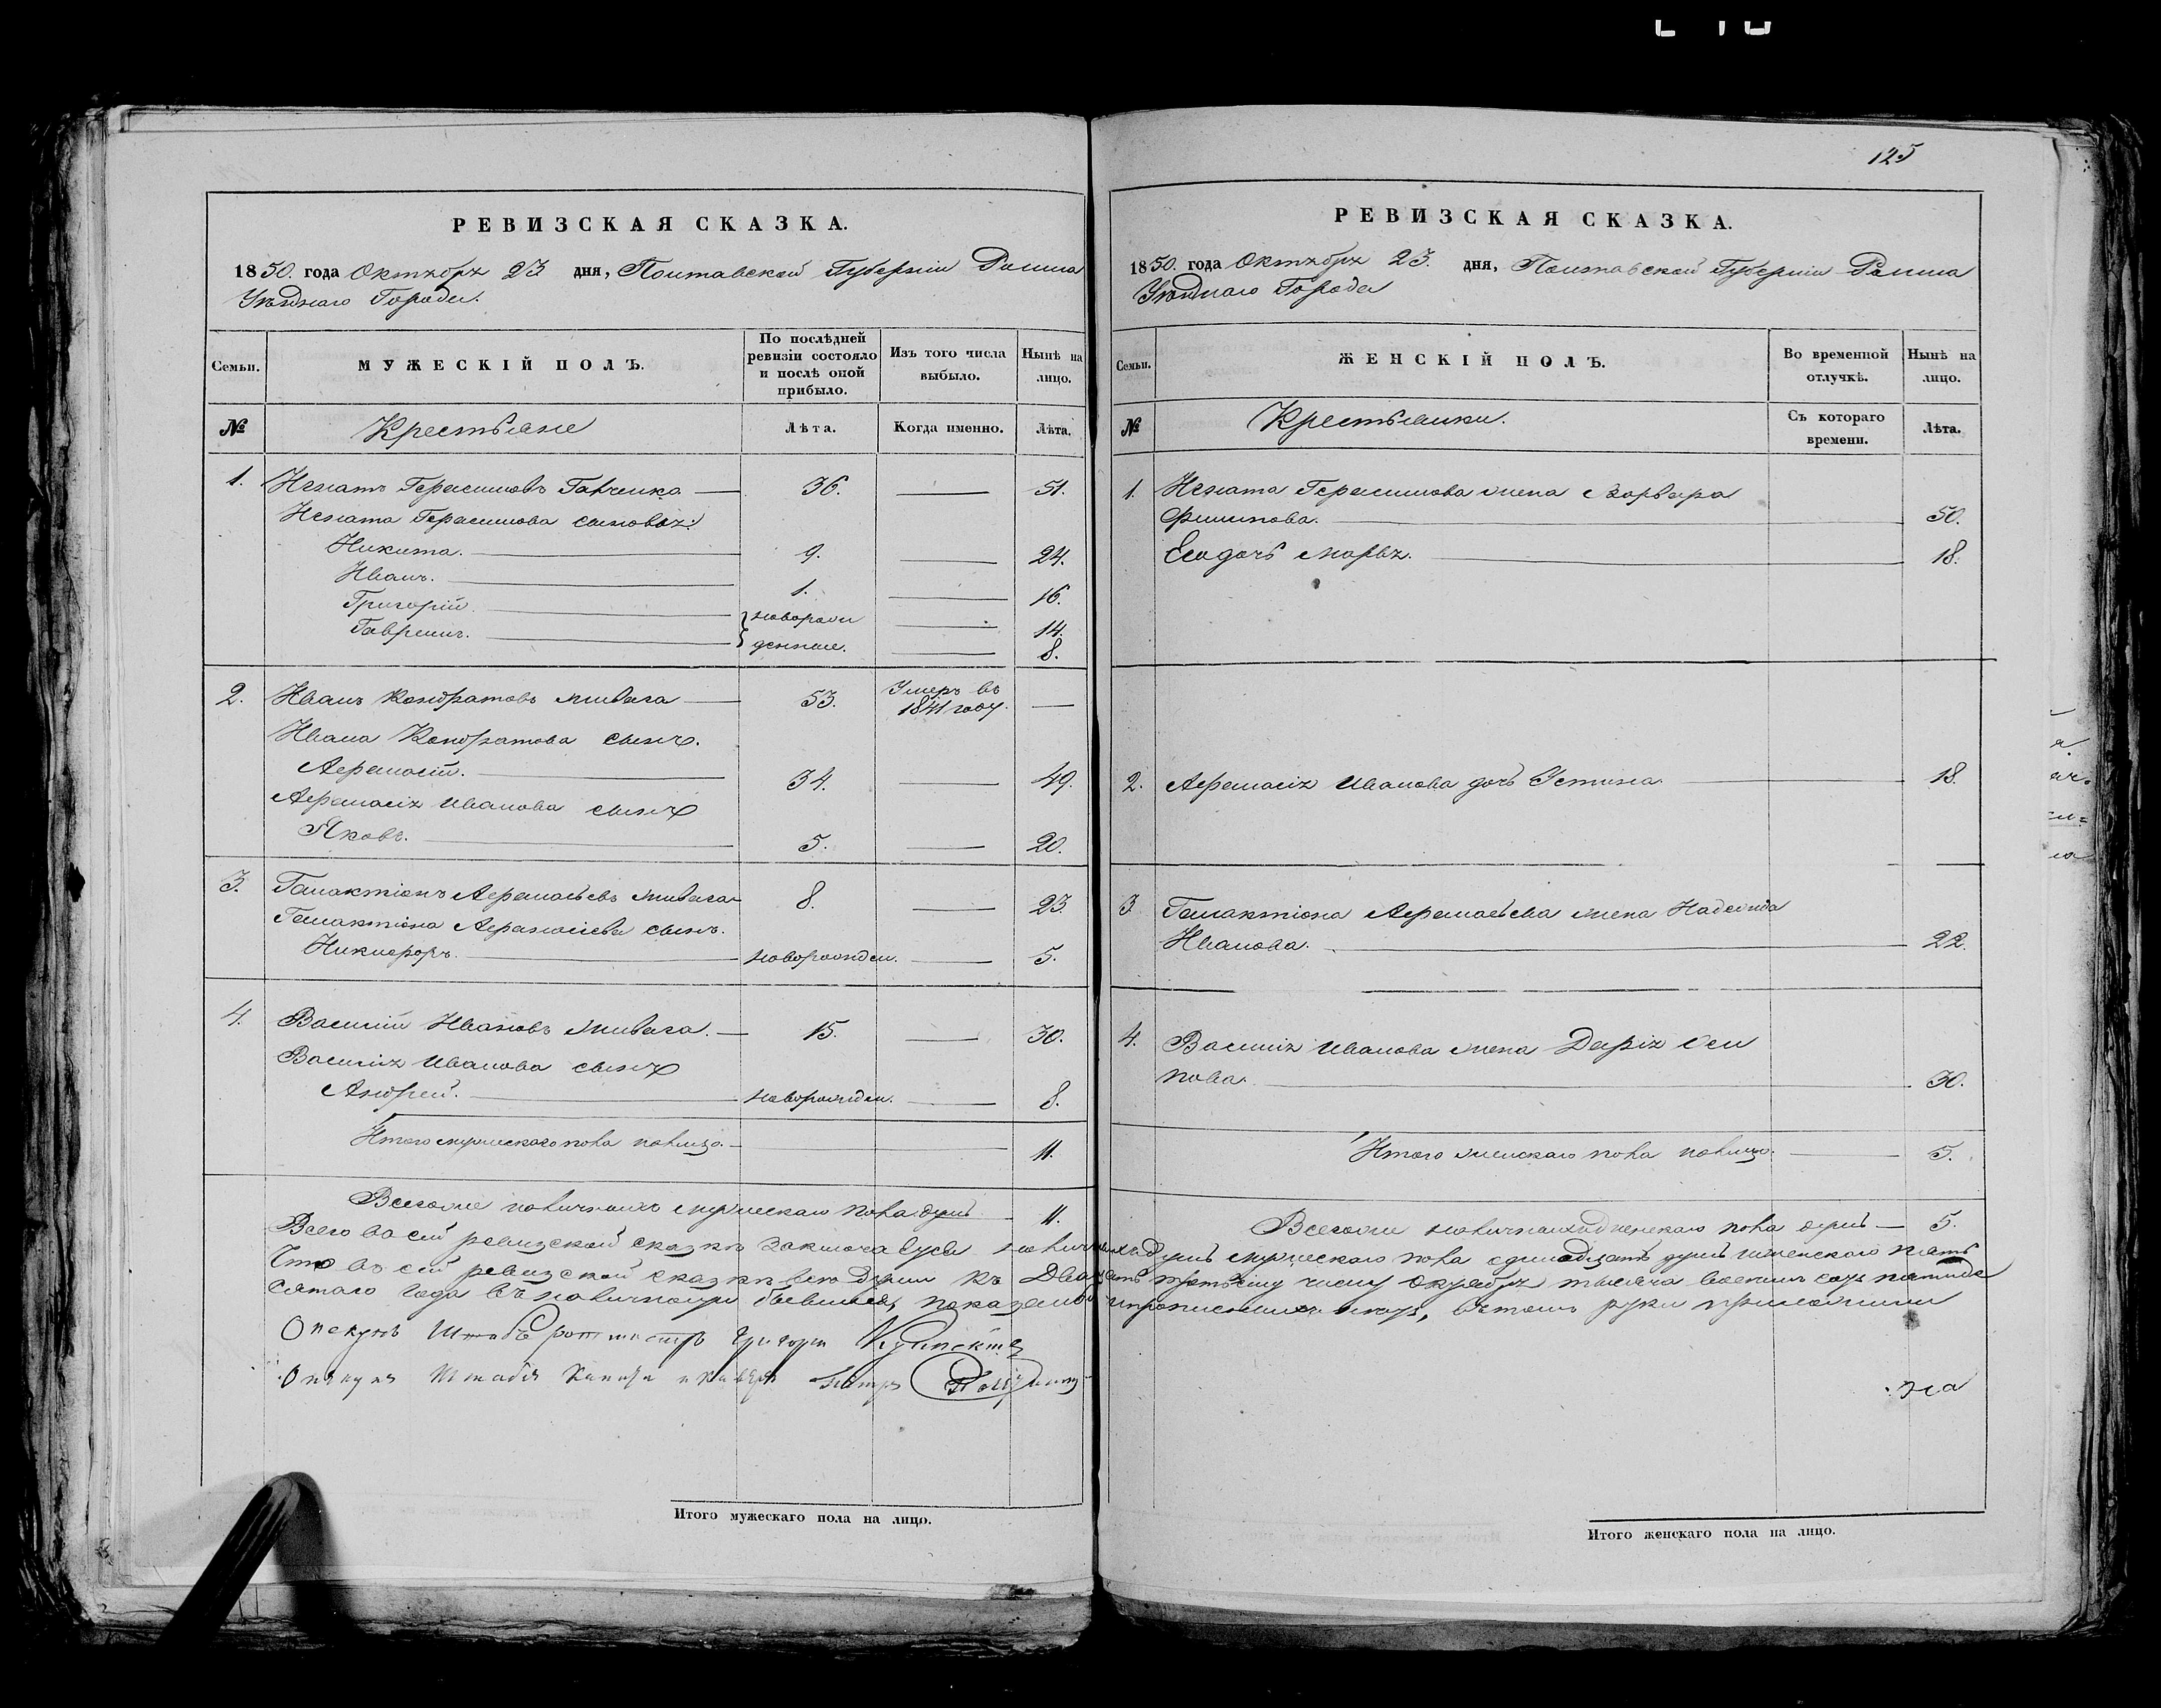 125
РЕВИЗСКАЯ СКАЗКА.
1850. года Октября 23 дня, Полтавской Губерніи Ромна
Уѣзднаго Города.
Семьи. МУЖЕСКІЙ ПОЛЪ. По послѣдней ревизіи состояло и послѣ оной прибыло. Изъ того числа выбыло. Нынѣ на лицо.
№ Крестьяне Лѣта. Когда именно. Лѣта.
1. Игнатъ Герасимовъ Ганченко 36. 51.
Игната Герасимова сыновья:
Никита. 9. 24.
Иванъ. 1. 16.
Григорій новорож 14.
Гаврешъ. денные. 8.
2. Иванъ Кондратовъ 53. Умеръ въ 1841 году.
Ивана Кондратова сынъ
Афанасій. 34. 49.
Афанасія Иванова сынъ
Яковъ. 5. 20.
3. Галактіонъ Афанасьевъ 8. 23
Галактіона Афанасіева сынъ.
Никифоръ. новорожден. 5.
4. Василій Ивановъ 15. 30.
Василія Иванова сынъ
Андрей. новорожден. 8.
Итого мужескаго пола налицо. 11.
Всегоже наличныхъ мужескаго пола душъ 11.
РЕВИЗСКАЯ СКАЗКА.
1850. года Октября 23. дня, Полтавской Губерніи Ромна
Уѣзднаго Города
Семьи. ЖЕНСКІЙ ПОЛЪ. Во временной отлучкѣ. Нынѣ на лицо.
№ Крестьянки. Съ котораго времени. Лѣта.
1. Игната Герасимова жена Варвара
Филипова. 50.
Егодочь Марья. 18.
2. Афанасія Иванова дочь Устина 18.
3 Галактіона Афанасьева жена Надежда
Иванова. 22.
4. Василія Иванова жена Дарія Оси
пова. 30.
Итого женскаго пола налицо. 5.
Всегоже наличныхъ женскаго пола душъ 5.
Всего во сей ревизской сказкѣ заключающуся наличныхъ душъ мужескаго пола одинадцать душъ женскаго пять
Что въ сей ревизской сказкѣ все души къ Двадцать третьему числу Октября тысяча восемь сотъ пятиде
сятаго года въ наличности бывшія, показаны въ томъ руки приложили
Опекунъ Штабъ ротмистръ Григорій
Опекунъ Штабсъ Петръ
на
Итого мужескаго пола на лицо.
Итого женскаго пола на лицо.